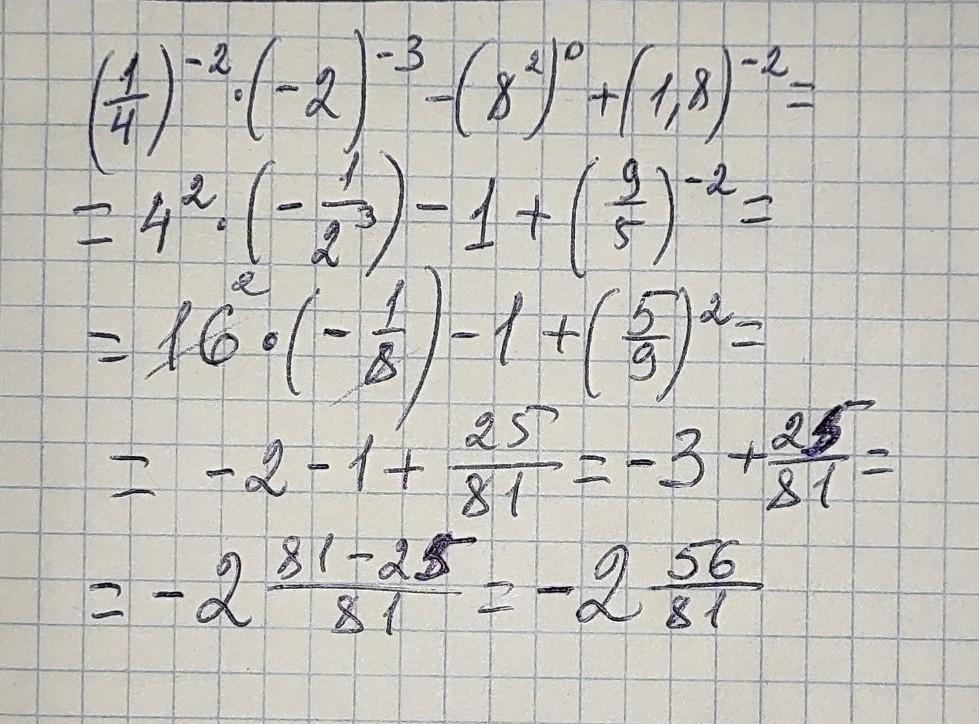 (1/4)^-2 · (-2)^-3 - (8^2)^0 + (1,8)^-2 =
= 4^2 · (- 1/2^3) - 1 + (9/5)^-2 =
= 16^2 · (- 1/8) - 1 + (5/9)^2 =
= -2 - 1 + 25/81 = -3 + 25/81 =
= -2 81-25/81 = -2 56/81